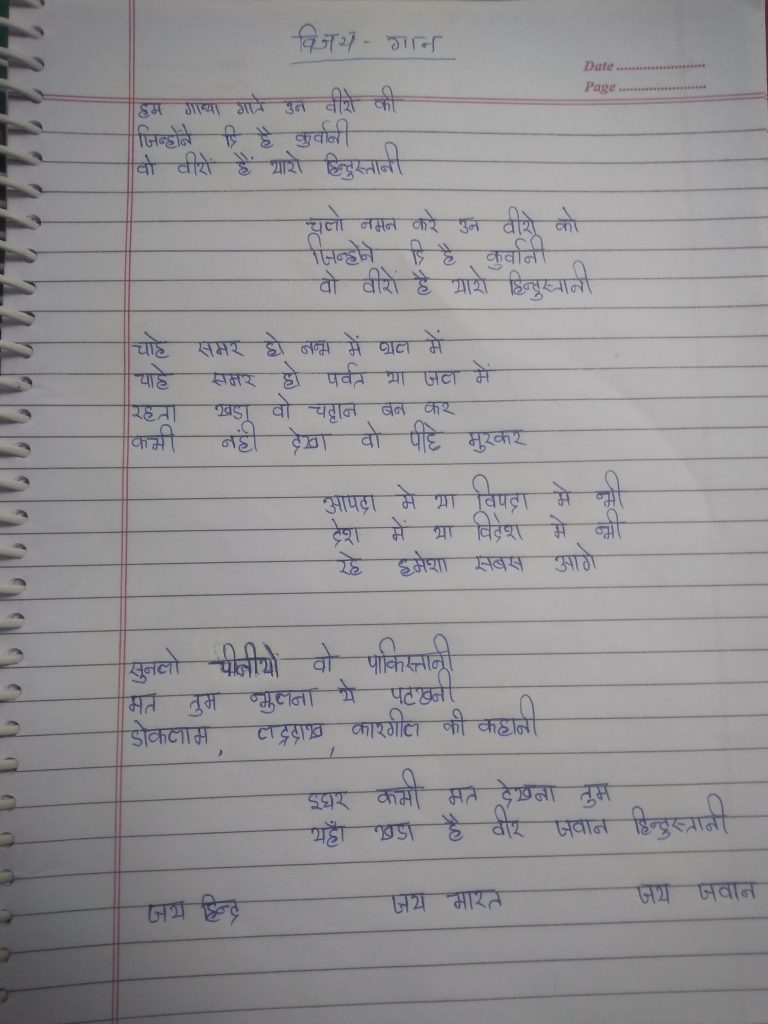 विजय - गान
Date
Page
हम गाथा गाते उन वीरो की
जिन्होंने दि है कुर्वानी
वो वीरों हैं यारो हिन्दुस्तानी
चलो नमन करे उन वीरो को
जिन्होने दि है कुर्वानी
वो वीरों है यारो हिन्दुस्तानी
चाहे समर हो नभ में थल में
चाहे समर हो पर्वत या जल में
रहता खडा वो चट्टान बन कर
कभी नंही देखा वो पीछे मुरकर
आपदा मे या विपदा मे भी
देश में या विदेश मे भी
रहे हमेशा सबस आगे
सुनलो चीनीयों वो पाकिस्तानी
मत तुम भुलना ये पटखनी
डोकलाम, लद्दाख, कारगील की कहानी
इधर कभी मत देखना तुम
यहाँ खडा है वीर जवान हिन्दुस्तानी
जय हिन्द जय भारत जय जवान